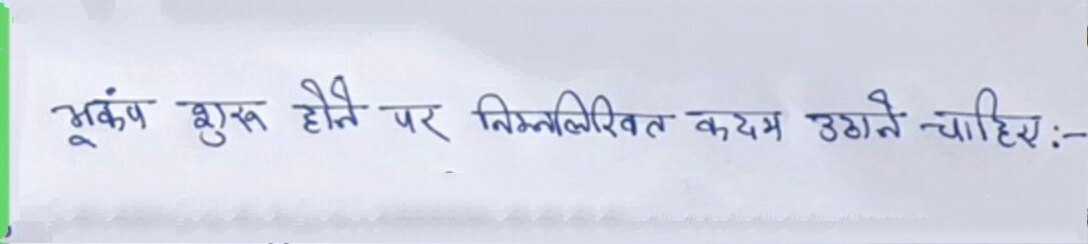 भूकंप शुरू होने पर निम्नलिखित कदम उठाने चाहिए:-